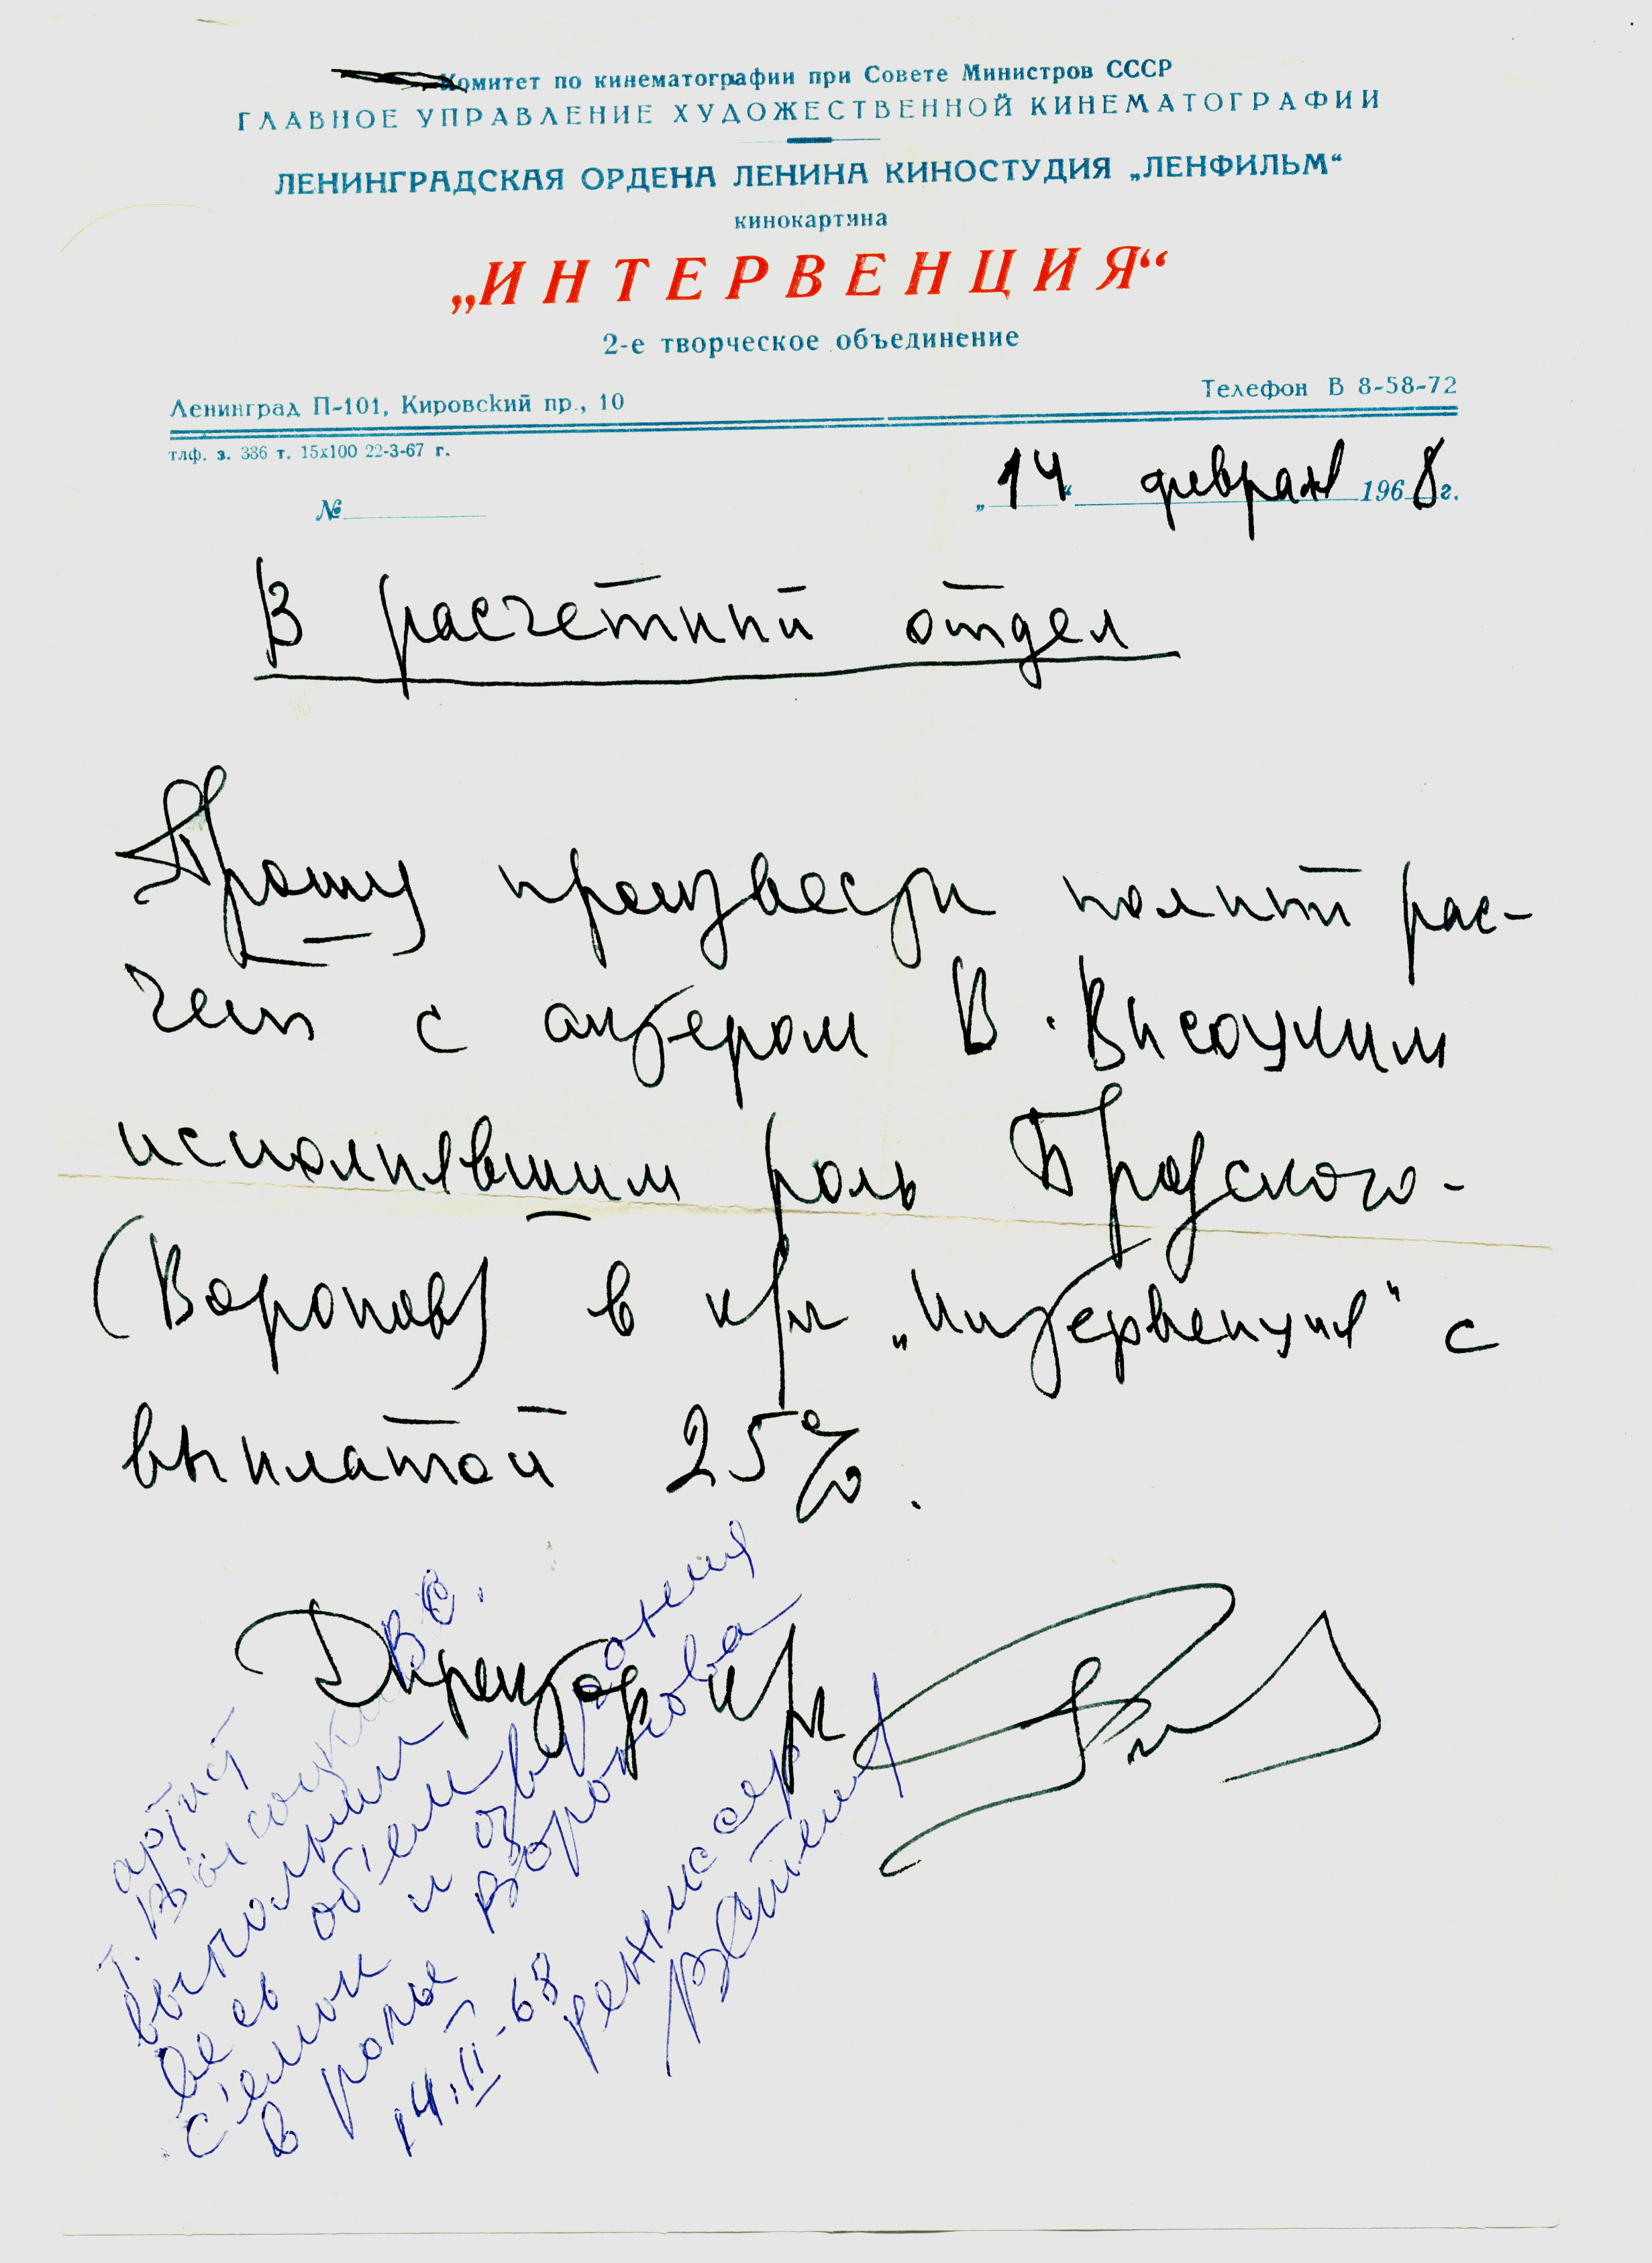 Комитет по кинематографии при Совете Министров СССР
ГЛАВНОЕ УПРАВЛЕНИЕ ХУДОЖЕСТВЕННОЙ КИНЕМАТОГРАФИИ
ЛЕНИНГРАДСКАЯ ОРДЕНА ЛЕНИНА КИНОСТУДИЯ „ЛЕНФИЛЬМ“
кинокартина
„ИНТЕРВЕНЦИЯ“
2-е творческое объединение
Ленинград П-101, Кировский пр., 10
Телефон В 8-58-72
тлф. з. 336 т. 15х100 22-3-67 г.
№
„14“ февраля 1968 г.
В расчетный отдел
Прошу произвести полный рас-
чет с актером В. Высоцким
исполнявшим роль Бродского-
(Воронов) в к/к „Интервенция" с
выплатой 25%.
Директор к/к
артист
т. Высоцкий В С.
выполнил
весь объем
с'емок и озвучания
в роли Воронова
14.II-68 режиссер